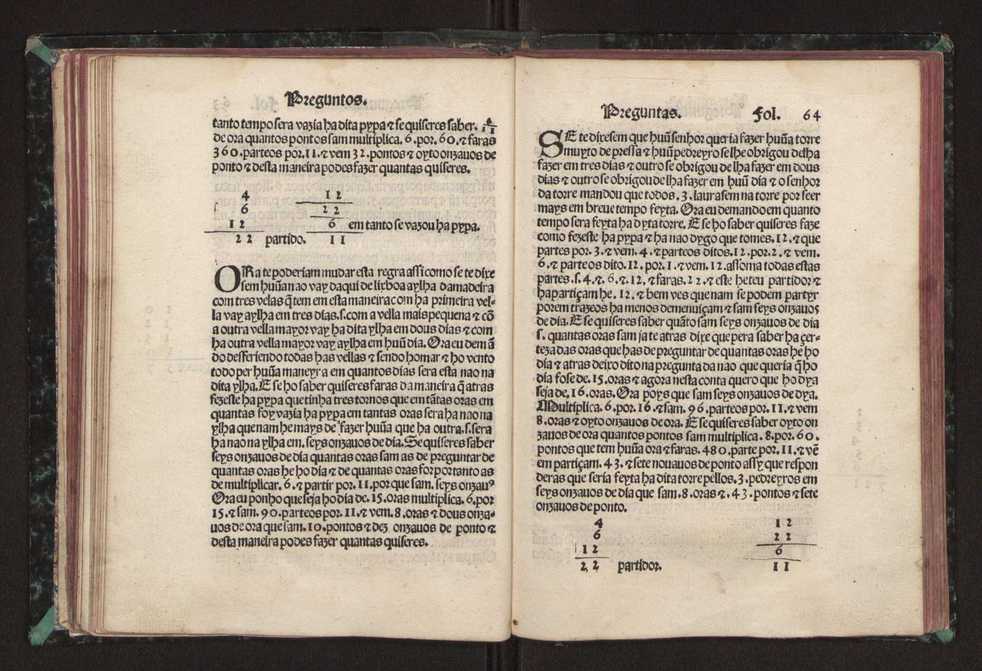 Preguntos.
tanto tempo sera vazia ha dita pypa ⁊ se quiseres saber. 6/11
de ora quantos pontos sam multiplica. 6. por. 60. ⁊ faras
360. parteos por. 11. ⁊ vem 32. pontos ⁊ oyto onzauos de
ponto ⁊ desta maneira podes fazer quantas quiseres.
4 12
6 22
12 6 em tanto se vazou ha pypa.
22 partido. 11
ORa te poderiam mudar esta regra assi como se te dixe
sem huũ nao vay daqui de lixboa a ylha da madeira
com tres velas q̃ tem em esta maneira com ha primeira vel-
la vay a ylha em tres dias. s. com a vella mais pequena ⁊ cõ
a outra vella mayor vay ha dita ylha em dous dias ⁊ com
ha outra vella mayor vay a ylha em huũ dia. Ora eu dem ã
do desferiendo todas has vellas ⁊ sendo ho mar ⁊ ho vento
todo per huũa maneyra em quantos dias sera esta nao na
dita ylha. E se ho saber quiseres faras da maneira q̃ atras
fezeste ha pypa que tinha tres tornos que em tãtas oras em
quantas foy vazia ha pypa em tantas oras sera ha nao na
ylha que nam he mays de fazer huũa que ha outra. s. sera
ha nao na ylha em. seys onzauos de dia. Se quiseres saber
seys onzauos de dia quantas oras sam as de preguntar de
quantas oras he ho dia ⁊ de quantas oras for por tanto as
de multiplicar. 6. ⁊ partir por. 11. por que sam. seys onzauꝰ
Ora eu ponho que seja ho dia de. 15. oras multiplica. 6. por
15. ⁊ sam. 90. parteos por. 11. ⁊ vem. 8. oras ⁊ dous onza-
uos de ora que sam. 10. pontos ⁊ dez onzauos de ponto ⁊
desta maneira podes fazer quantas quiseres.
Preguntas. Fol. 64
SE te dixesem que huũ senhor queria fazer huũa torre
muyto de pressa ⁊ huũ pedreyro se lhe obrigou de lha
fazer em tres dias ⁊ outro se obrigou de lha fazer em dous
dias ⁊ outro se obrigou de lha fazer em huũ dia ⁊ o senhor
da torre mandou que todos. 3. laurasem na torre por seer
mays em breue tempo feyta. Ora eu demando em quanto
tempo sera feyta ha dyta torre. E se ho saber quiseres faze
como fezeste ha pypa ⁊ ha nao dygo que tomes. 12. ⁊ que
partes por. 3. ⁊ vem. 4. ⁊ parteos ditos. 12. por. 2. ⁊ vem.
6. ⁊ parteos dito. 12. por. 1. ⁊ vem. 12. assoma todas estas
partes. s. 4. ⁊. 6. ⁊. 12. ⁊ faras. 22. ⁊ este he teu partidor ⁊
ha partiçam he. 12. ⁊ bem ves que nam se podem partyr
porem trazeos ha menos demenuiçam ⁊ sam seys onzauos
de dia. E se quiseres saber quãto sam seys onzauos de dia
s. quantas oras sam ja te atras dixe que pera saber ha çer-
teza das oras que has de preguntar de quantas oras he ho
dia ⁊ atras deixo dito na pregunta da nao que queria q̃ ho
dia fose de. 15. oras ⁊ agora nesta conta quero que ho dya
seja de. 16. oras. Ora poys que sam seys onzauos de dya.
Multiplica. 6. por. 16. ⁊ sam. 96. parteos por. 11. ⁊ vem
8. oras ⁊ oyto onzauos de ora. E se quiseres saber oyto on
zauos de ora quantos pontos sam multiplica. 8. por. 60.
pontos que tem huũa ora ⁊ faras. 480. parte por. 11. ⁊ vẽ
em partiçam. 43. ⁊ sete nouauos de ponto assy que respon
deras que seria feyta ha dita torre pellos. 3. pedreyros em
seys onzauos de dia que sam. 8. oras ⁊. 43. pontos ⁊ sete
onzauos de ponto.
4 12
6 22
12 6
22 partidor. 11